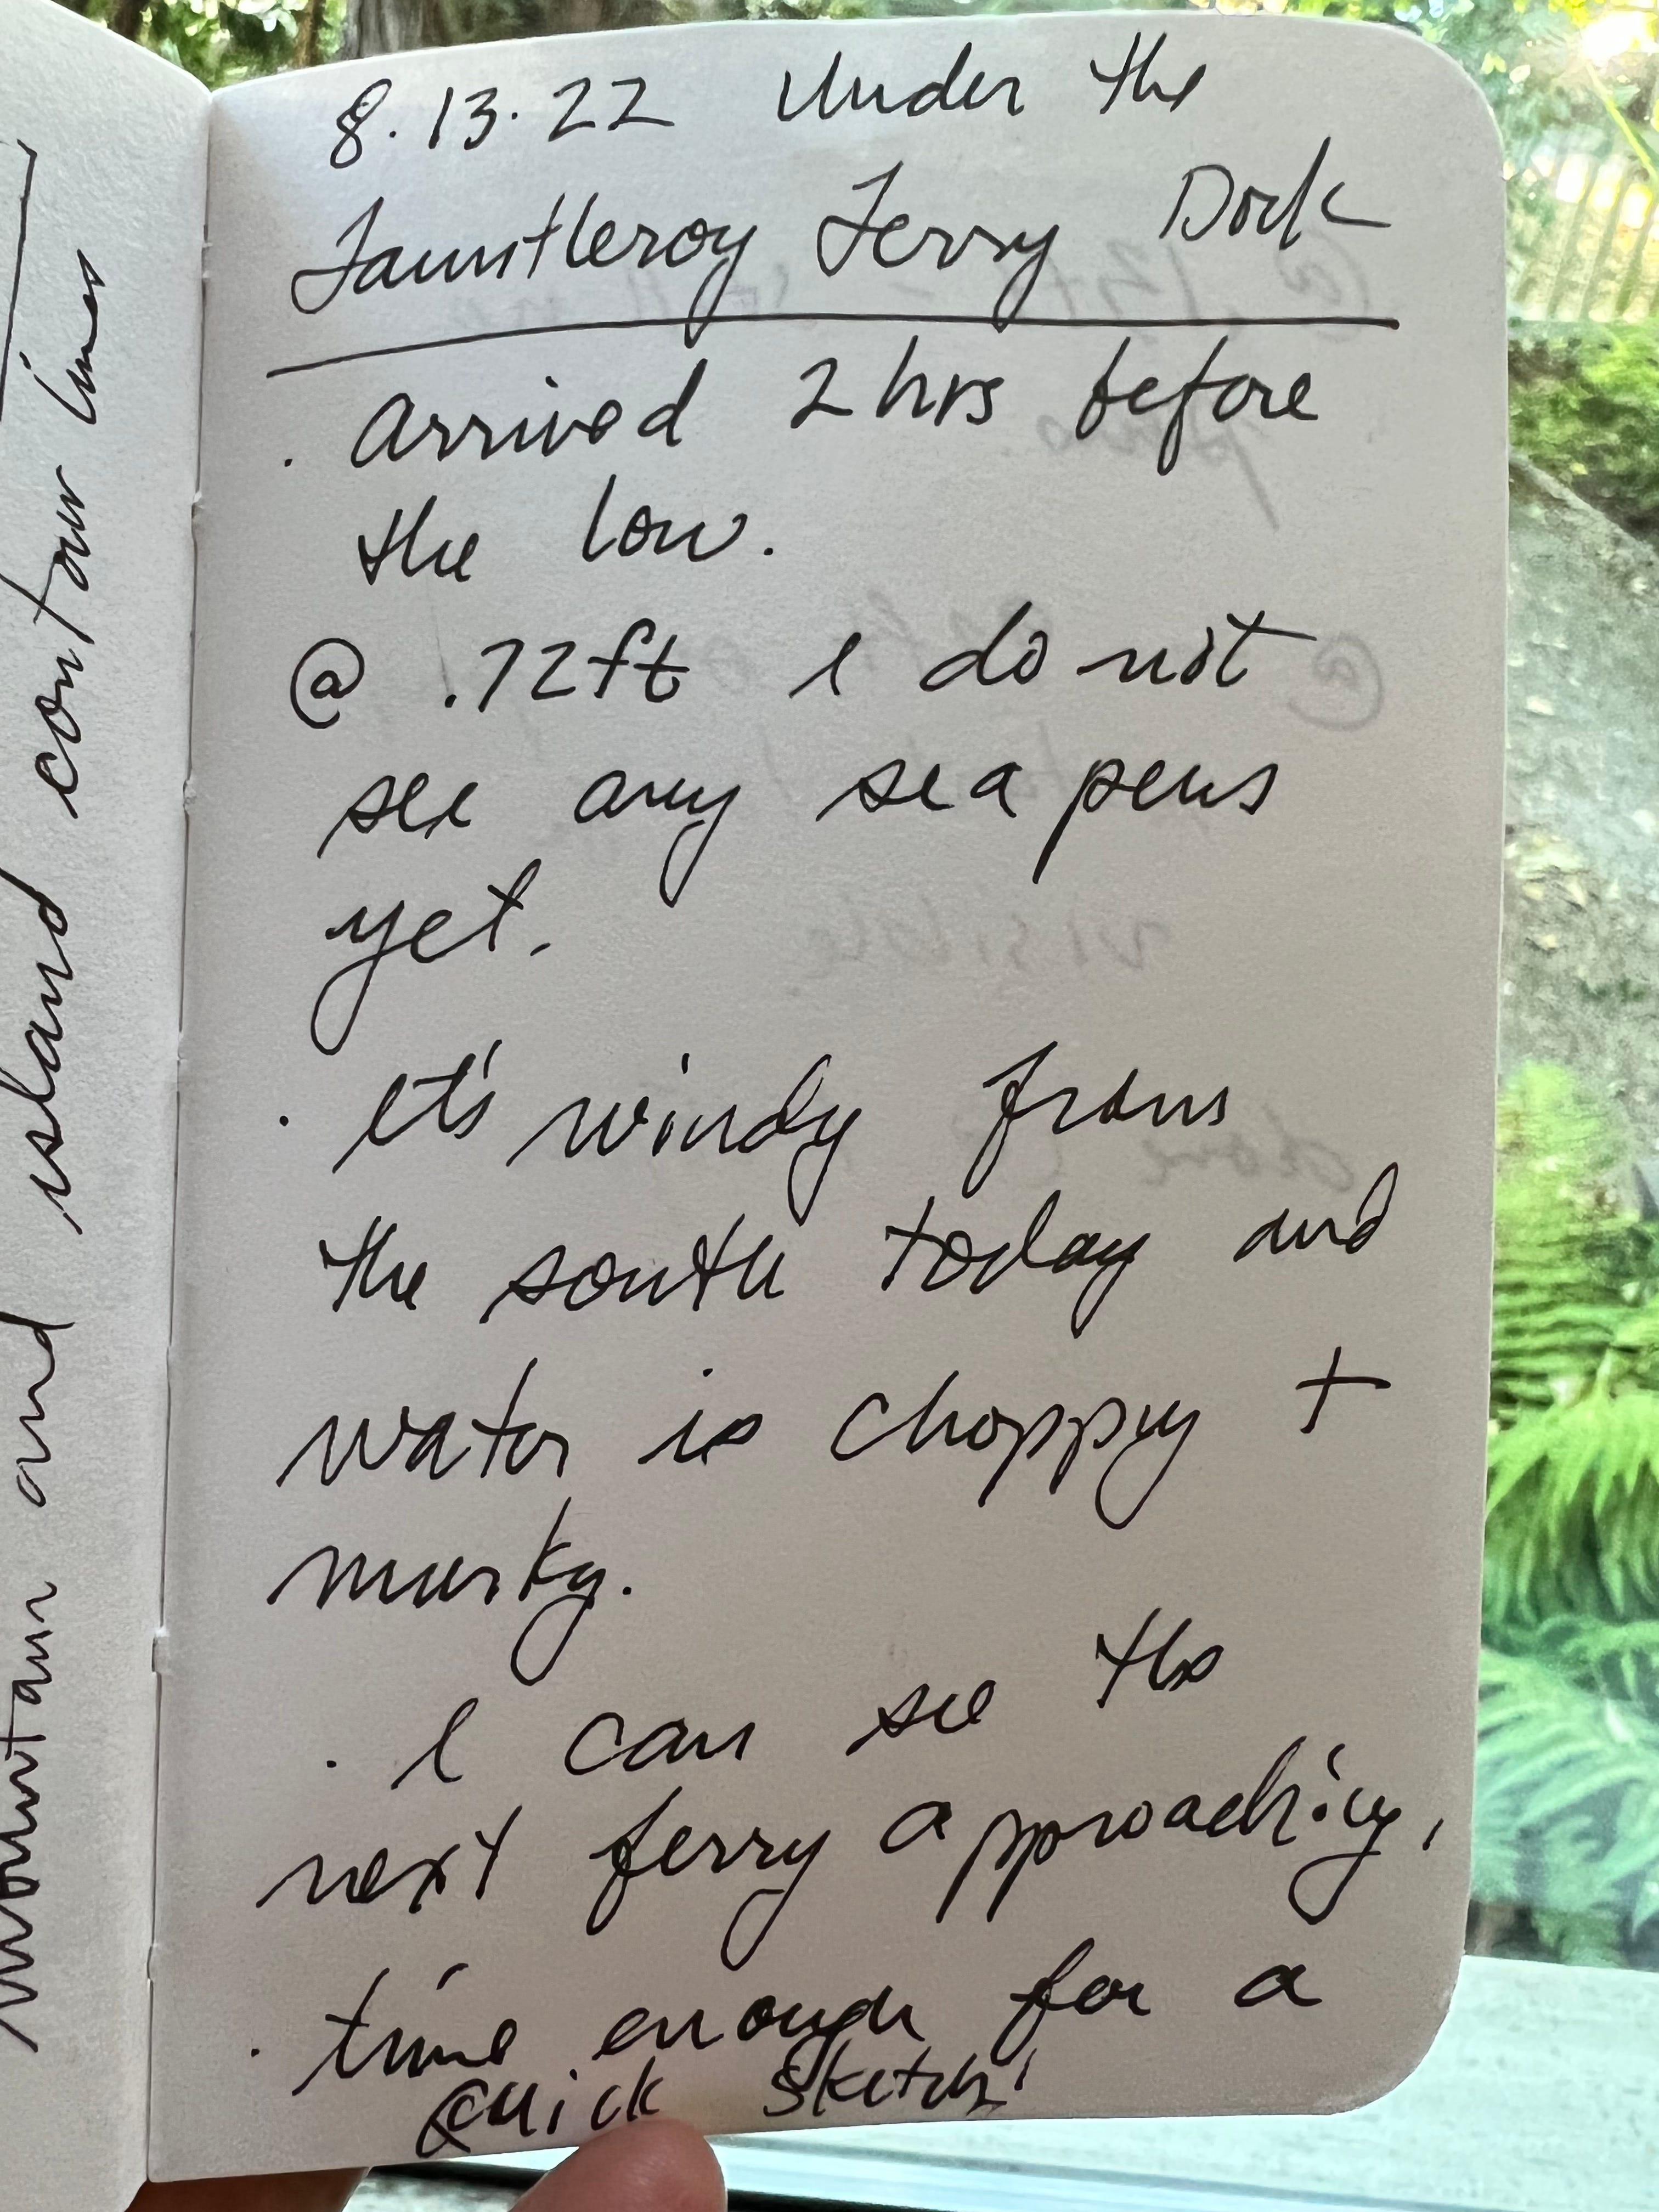 8.13.22 Under the
Fauntleroy Ferry Dock
. Arrived 2 hrs before
the low.
@ .72ft I do not
see any sea pens
yet.
. It's windy from
the south today and
water is choppy +
murky.
. I can see the
next ferry approaching,
. time enough for a
Quick sketch!
mountain and island contour lines